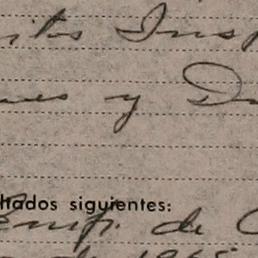 itos Insp
nes y Du
ltados siguientes:
Emp. de C